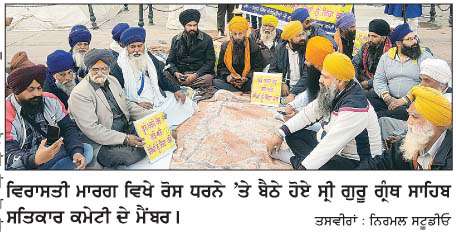 ਵਿਰਾਸਤੀ ਮਾਰਗ ਵਿਖੇ ਰੋਸ ਧਰਨੇ ’ਤੇ ਬੈਠੇ ਹੋਏ ਸ੍ਰੀ ਗੁਰੂ ਗ੍ਰੰਥ ਸਾਹਿਬ
ਸਤਿਕਾਰ ਕਮੇਟੀ ਦੇ ਮੈਂਬਰ। ਤਸਵੀਰਾਂ : ਨਿਰਮਲ ਸਟੂਡੀਓ